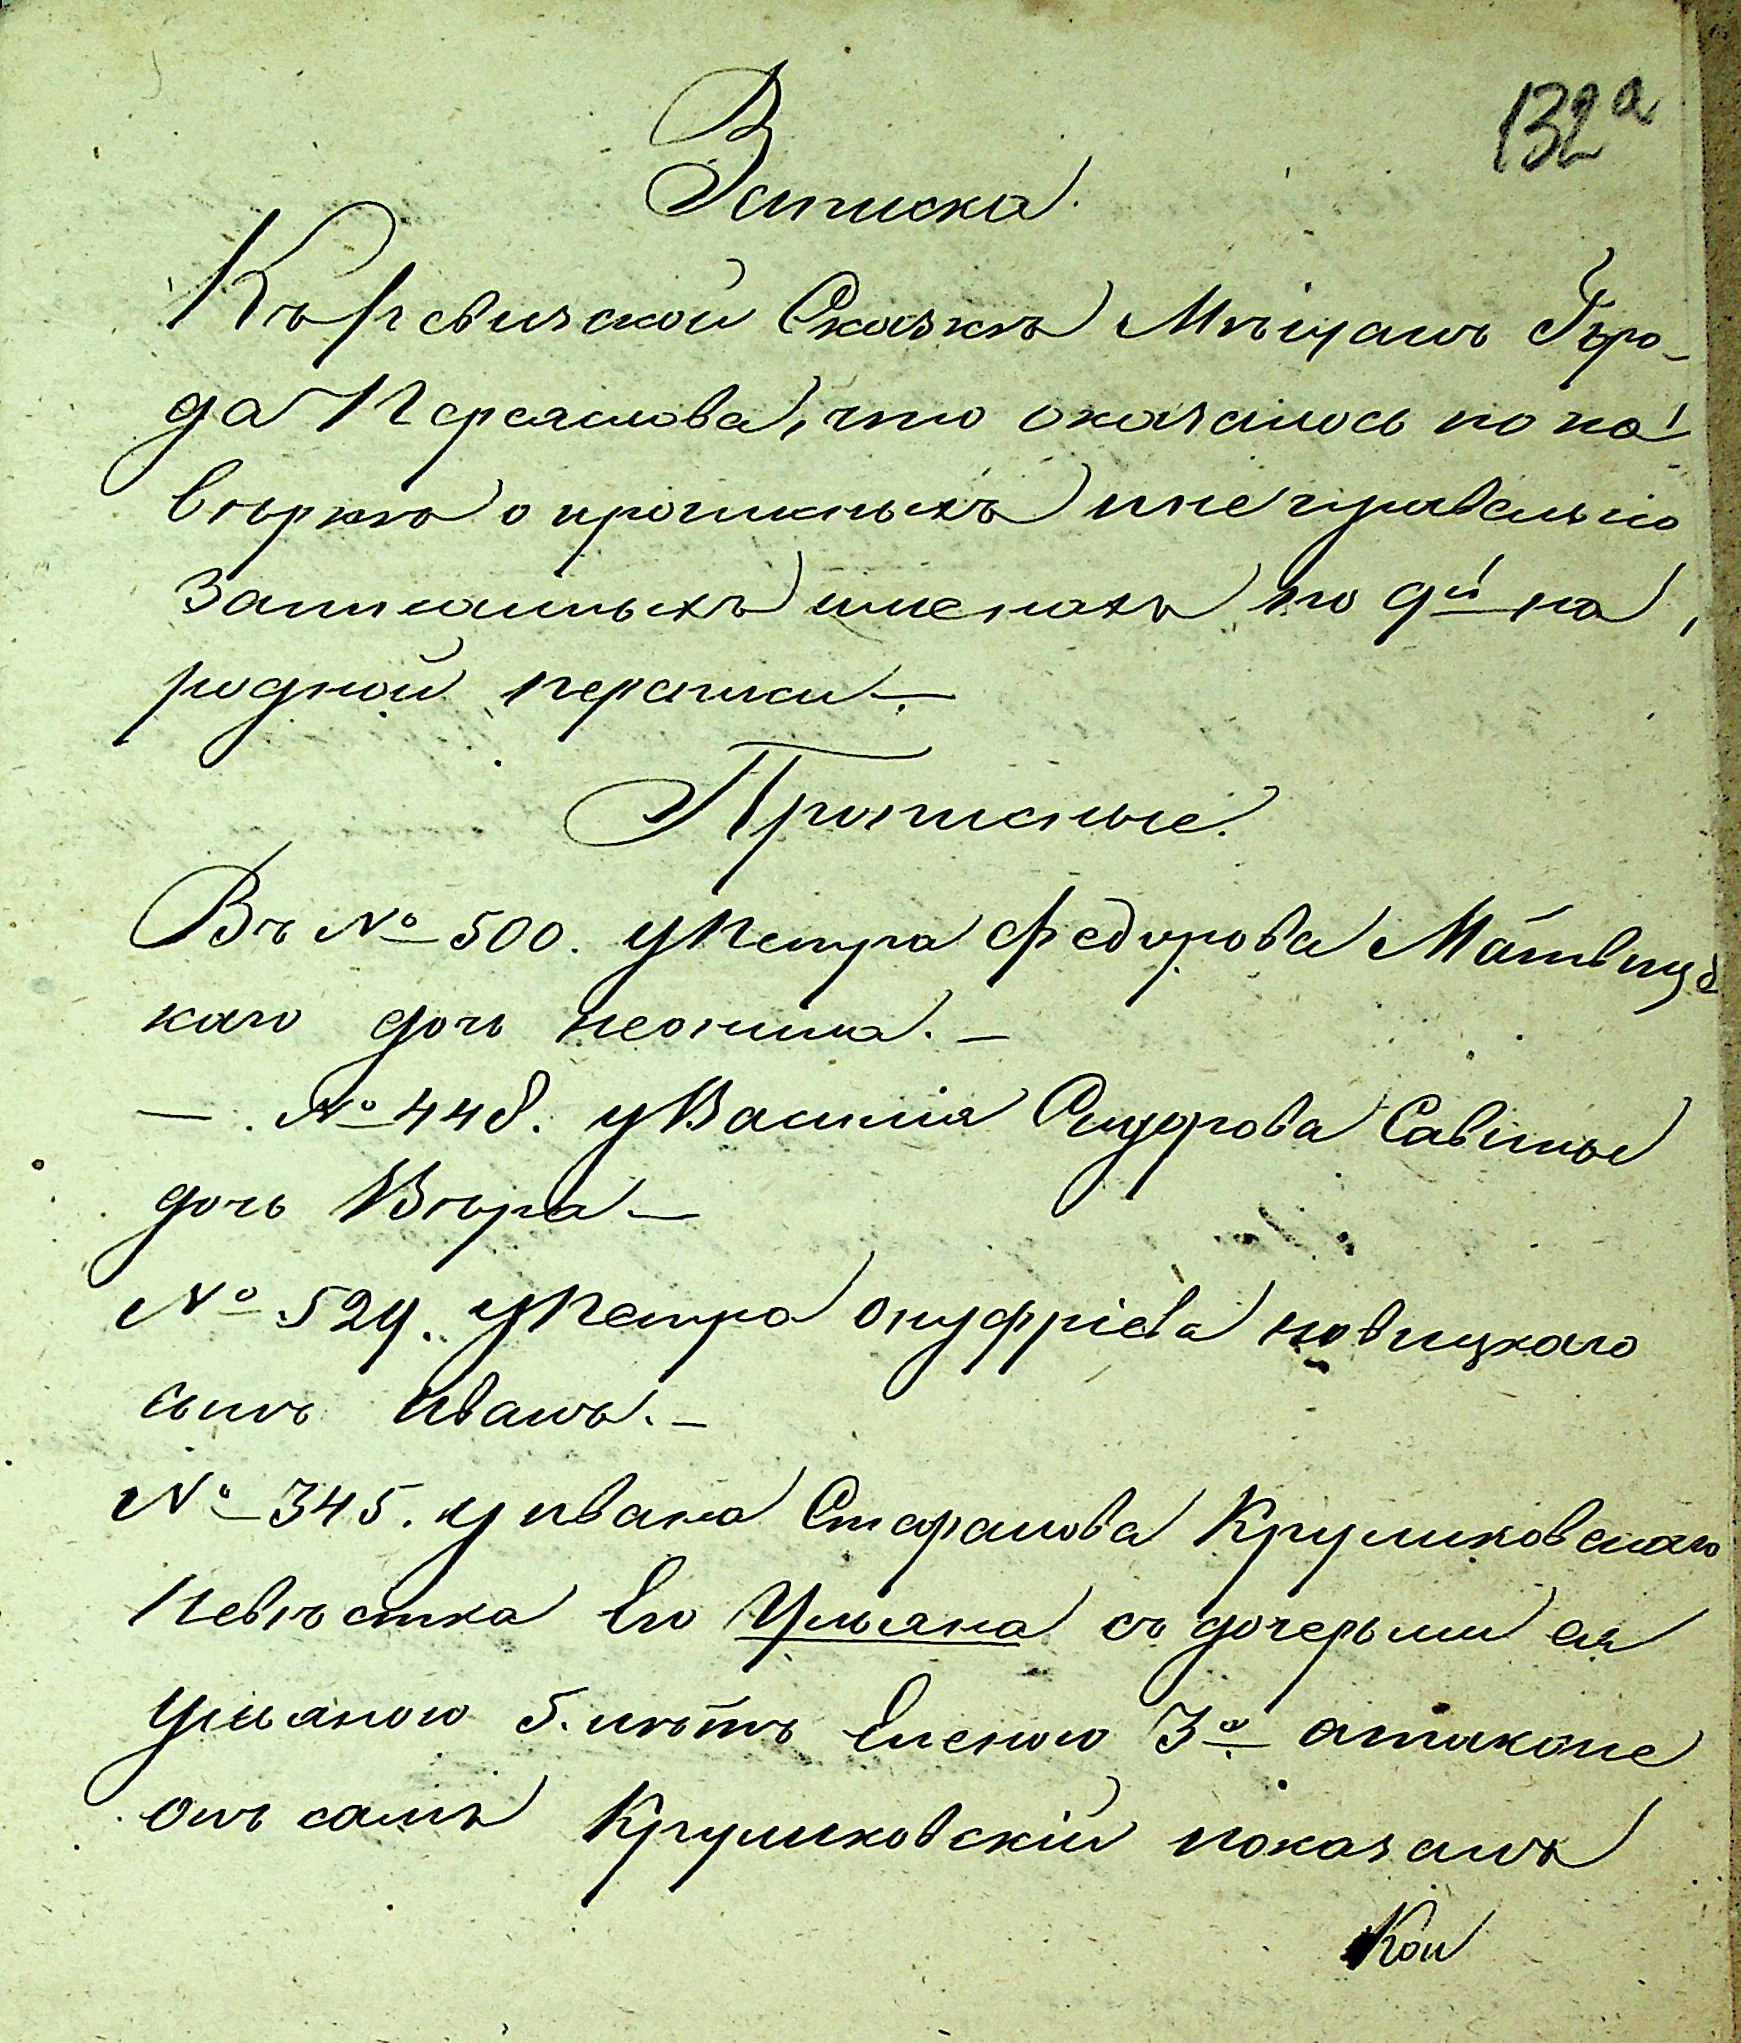 132а
Записка
Къ Ревизской Сказкѣ Мѣщанъ Горо-
да Переяслова, что оказалось по по-
вѣркѣ о прописныхъ и неправельно
записанныхъ именахъ по 9й на
родной переписи —
Прописные.
Въ № 500. у Петра Федорова Матвицс
каго дочь неонила. —
— . № 448. у Василія Сидорова Савины
дочь Вѣра —
№ 529. у Петра онуфріева новицкаго
сынъ иванъ. —
№ 345. у ивана Стефанова Круликовскаго
Невѣстка Его Ульяна съ дочерьми ея
Ульяною 5. лѣтъ Еленою 3х атакже
онъ самъ Круликовскій показанъ
Кои